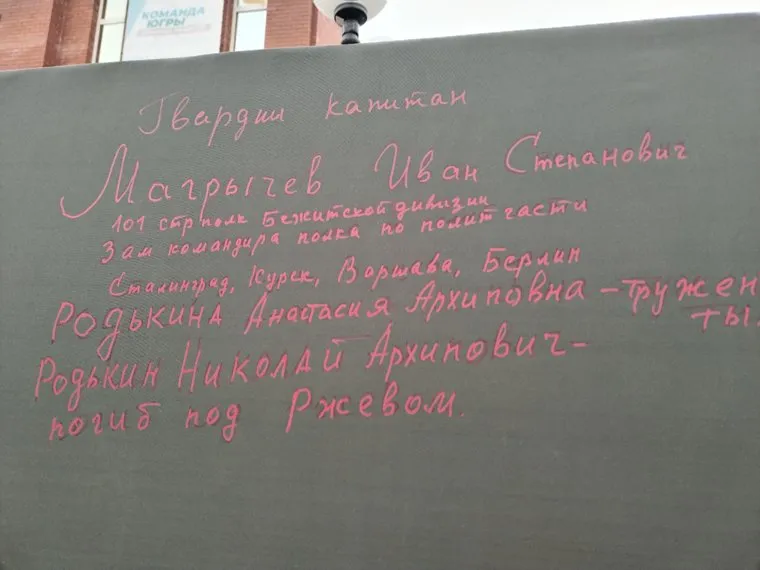 КОМАНДА
ЮГРЫ
Гвардии капитан
Магрычев Иван Степанович
101 стр полк Бежитской дивизии
Зам командира полка по полит части
Сталинград, Курск, Варшава, Берлин
Родькина Анастасия Архиповна - тружен
ты
Родькин Николай Архипович -
погиб под Ржевом.